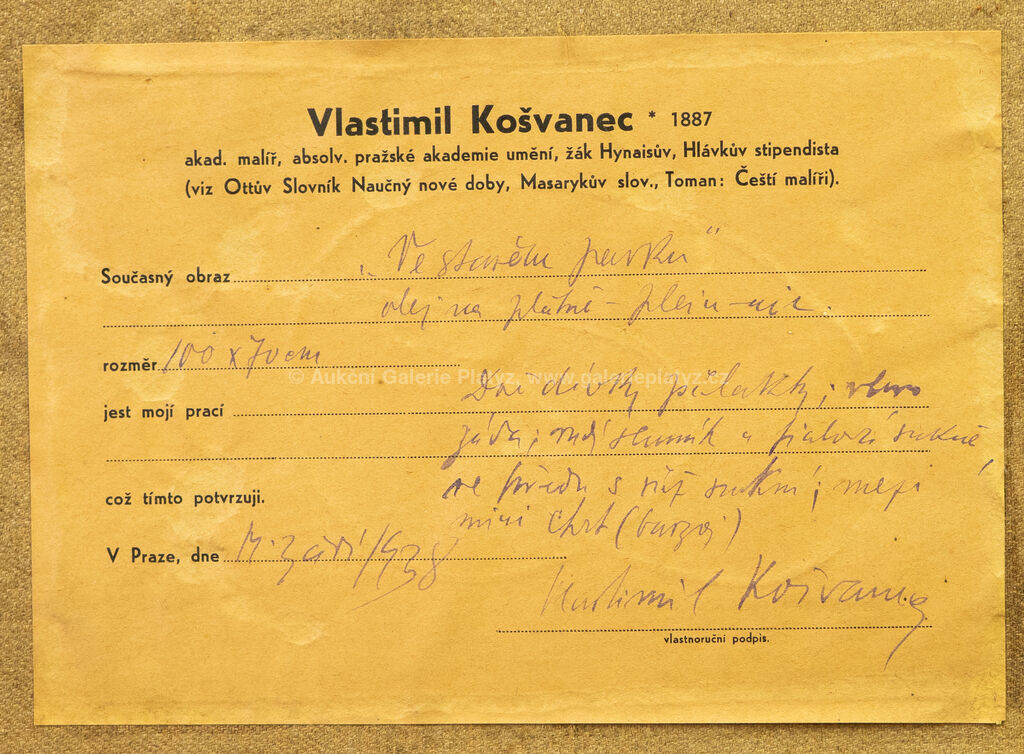 Vlastimil Košvanec * 1887
akad. malíř, absolv. pražské akademie umění, žák Hynaisův, Hlávkův stipendista
(viz Ottův Slovník Naučný nové doby, Masarykův slov., Toman: Čeští malíři).
Současný obraz „Ve starém parku"
olej na plátně - plein-air.
rozměr 100 x 70 cm
© Aukcni Galerie Platyz, www.galerieplatyz.cz
jest mojí prací Dvě dívky
záda, rudý slunník a fialová sukně,
ve předu s růž sukní; mezi
což tímto potvrzuji.
nimi chrt (barzoj)
V Praze, dne září 1938
Vlastimil Košvanec
vlastnoruční podpis.